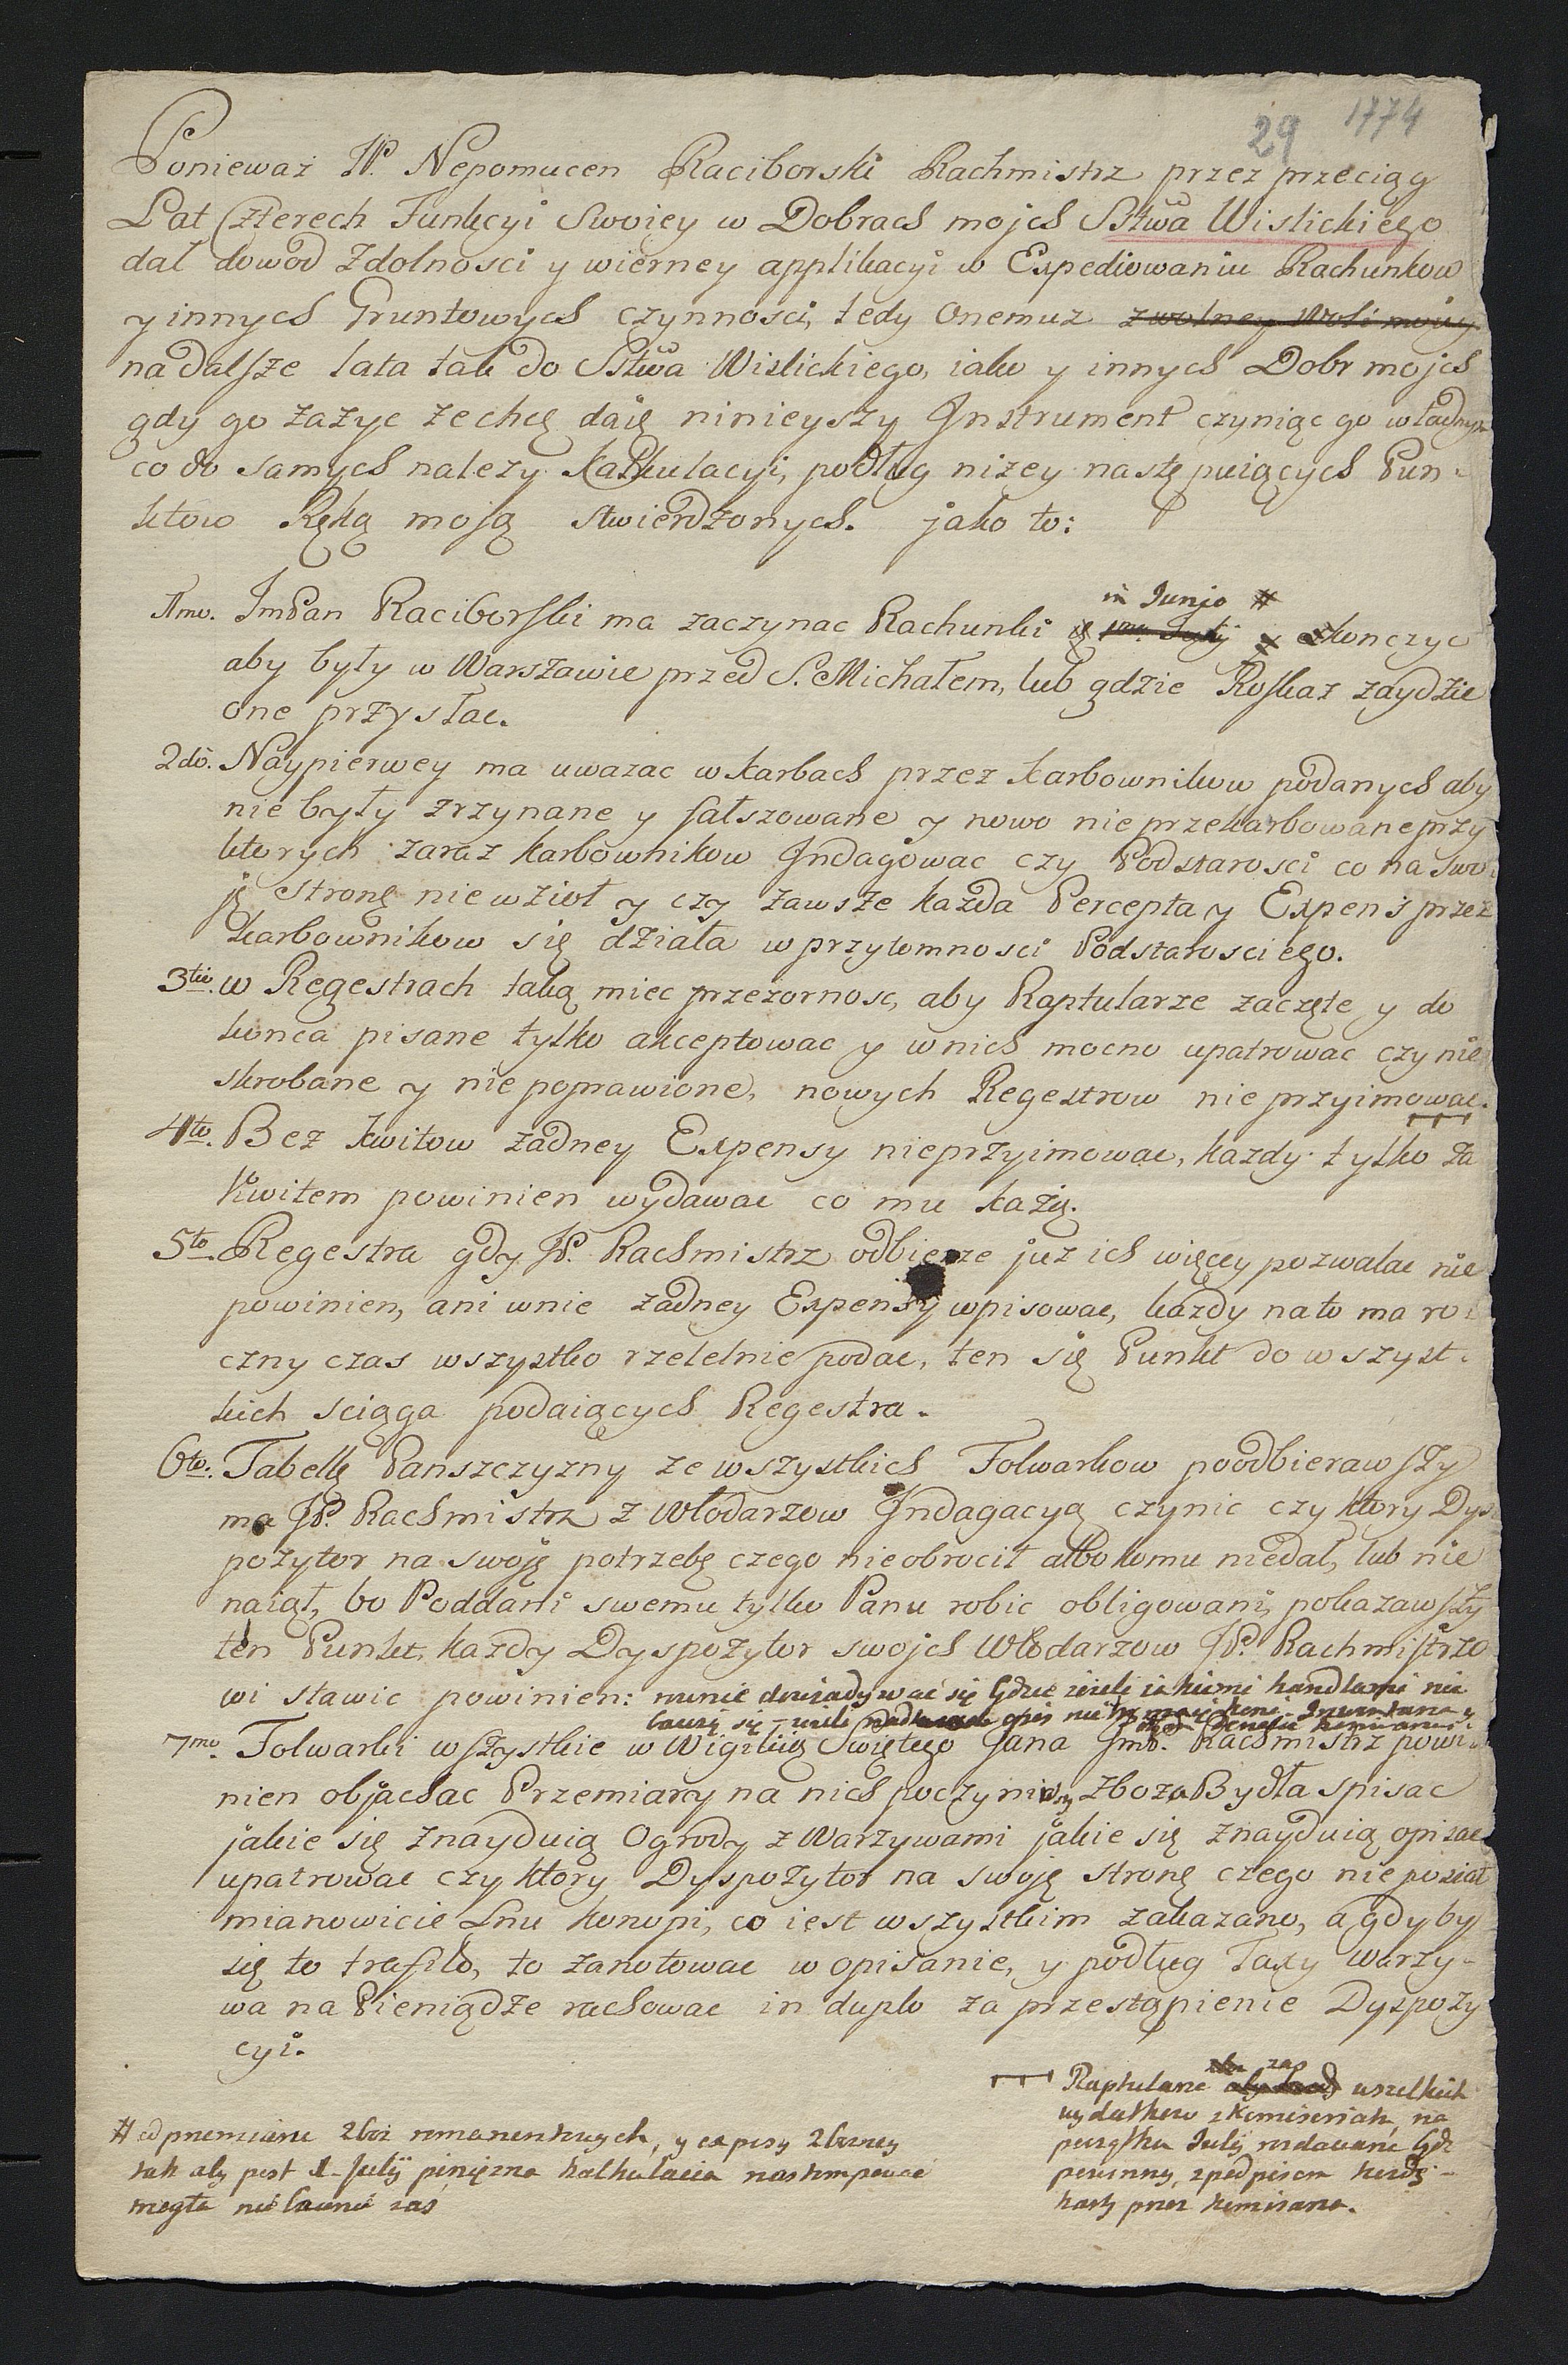 29 1774
Ponieważ JP. Nepomucen Raciborski Rachmistrz przez przeciąg
Lat Czterech Funkcyi Swoiey w Dobrach mojch Sstwa Wislickiego
dał dowod Zdolnosci y wierney applikacyi w Expediowaniu Rachunkow
y innych Gruntowych czynnosci, tedy Onemuz z wolney Woli moiey
na dalsze lata tak do Sstwa Wislickiego, iako y innych Dobr mojch
gdy go zażyc zechcę daię ninieyszy Instrument czyniąc go władnym
co do samych należy Kalkulacyi, podług niżey następuiących Pun-
ktow Ręką moją stwierdzonych. jako to:
in Junjo #
1mo. ImPan Raciborski ma zaczynac Rachunki July skonczyc
aby były w Warszawie przed S. Michałem, lub gdzie Roskaz zaydzie
one przysłac.
2do. Naypierwey ma uwazac w karbach przez karbownikow podanych aby
nie były zrzynane y fałszowane y nowo nie przekarbowane przy
ktorych zaraz karbownikow Indagowac czy Podstarosci co na swo
ję stronę nie wzioł y czy zawsze każda Percepta y Expens przez
karbownikow się działa w przytomnosci Podstarosciego.
3tio. w Regestrach taką miec przezornosc, aby Raptularze zaczęte y do
konca pisane tylko akceptowac y w nich mocno upatrowac czy nie
skrobane y nie poprawione, nowych Regestrow nie przyimowac.
4to. Bez kwitow żadney Expensy nieprzyimowac, kazdy tylko za
Kwitem powinien wydawac co mu każą.
5to. Regestra gdy JP. Rachmistrz odbierze już ich więcey pozwalac nie
powinien, ani w nie żadney Expensy wpisowac, każdy na to ma ro
czny czas wszystko rzetelnie podac, ten się Punkt do wszyst-
kich sciąga podaiących Regestra.
6to. Tabellę Panszczyzny ze wszystkich Folwarkow poodbierawszy
ma JP. Rachmistrz z Włodarzow Indagacyą czynic czy ktory Dys
pozytor na swoję potrzebę czego nieobrocił albo komu niedał, lub nie
naiął, bo Poddani swemu tylko Panu robic obligowani, pokazawszy
ten Punkt, każdy Dyspozytor swojch Włodarzow JP. Rachmistrzo
wi stawic powinien: dowiadywać się jeżeli iakiemi handlami nie
bawią się
7mo. Folwarki wszystkie w Wigilią Swiętego Jana Jmp. Rachmistrz powi-
nien objachac Przemiary na nich poczyniwszy Zboża Bydła spisac
jakie się znayduią Ogrody z Warzywami jakie się znayduią opisac
upatrowac czy ktory Dyspozytor na swoję stronę czego nie posiał
mianowicie Lnu konopi, co iest wszystkim zakazano, a gdyby
się to trafiło, to zanotowac w opisanie, y podług Taxy warzy-
wa na Pieniądze rachowac in duplo za przestąpienie Dyspozy
cyi.
Raptularze zas wszelkich
wydatkow na
początku July oddawane bydz
powinny, z podpisem każdej
karty przez
# od przemiaru zboż romanentowych, y expisy zbozney
tak aby post 1 July pieniężna kalkulacia nastempowac
mogła nie bawnie zas